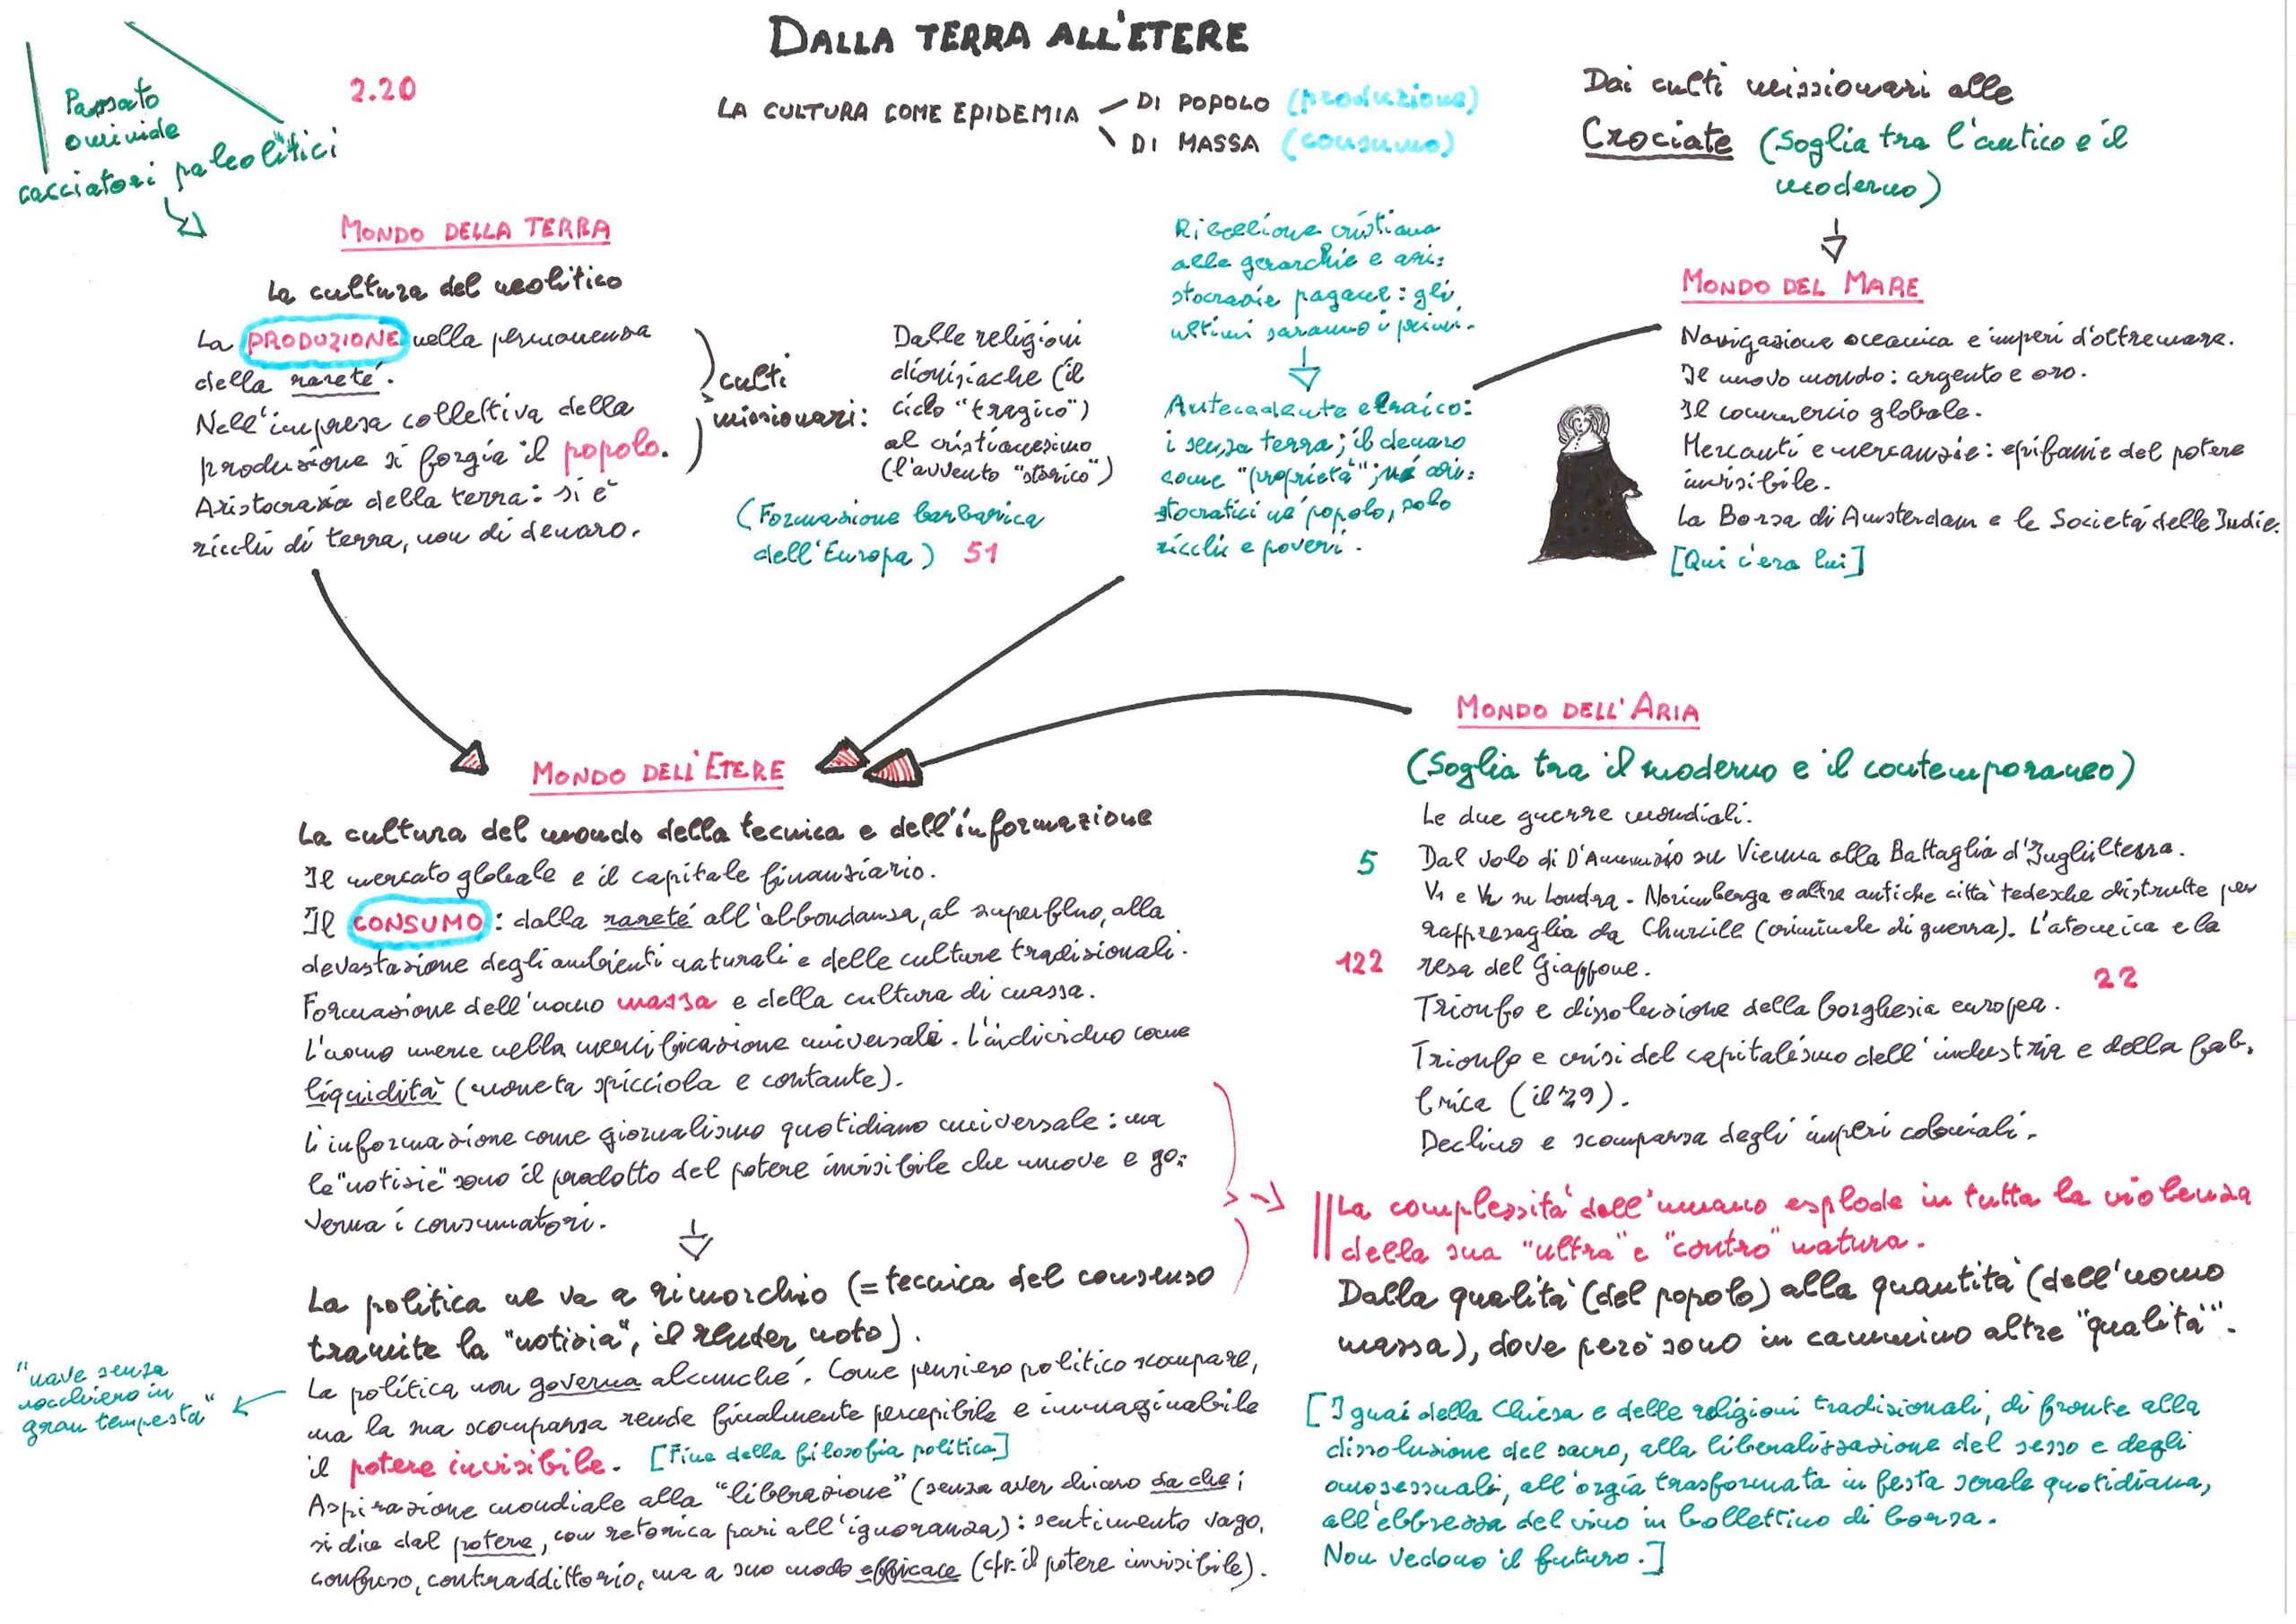 DALLA TERRA ALL'ETERE
LA CULTURA COME EPIDEMIA
DI POPOLO (produzione)
DI MASSA (consumo)
2.20
Passato
ominide
cacciatori paleolitici
MONDO DELLA TERRA
La cultura del neolitico
La PRODUZIONE nella permanenza
della rareté.
Nell'impresa collettiva della
produzione si forgia il popolo.
Aristocrazia della terra: si è
ricchi di terra, non di denaro.
culti
missionari:
Dalle religioni
dionisiache (il
ciclo "tragico")
al cristianesimo
(l'avvento "storico")
(Formazione barbarica
dell'Europa) 51
Ribellione cristiana
alle gerarchie e ari:
stocrazie pagane: gli
ultimi saranno i primi.
Antecedente ebraico:
i senza terra; il denaro
come "proprietà"; né ari:
stocratici né popolo, solo
ricchi e poveri.
Dai culti missionari alle
Crociate (Soglia tra l'antico e il
moderno)
MONDO DEL MARE
Navigazione oceanica e imperi d'oltremare.
Il nuovo mondo: argento e oro.
Il commercio globale.
Mercanti e mercanzie: epifanie del potere
invisibile.
La Borsa di Amsterdam e le Società delle Indie.
[Qui c'era lui]
MONDO DELL'ETERE
La cultura del mondo della tecnica e dell'informazione
Il mercato globale e il capitale finanziario.
Il CONSUMO: dalla rareté all'abbondanza, al superfluo, alla
devastazione degli ambienti naturali e delle culture tradizionali.
Formazione dell'uomo massa e della cultura di massa.
L'uomo merce nella mercificazione universale. L'individuo come
liquidità (moneta spicciola e contante).
L'informazione come giornalismo quotidiano universale: ma
le "notizie" sono il prodotto del potere invisibile che muove e go:
verna i consumatori.
La politica ne va a rimorchio (= tecnica del consenso
tramite la "notizia", il voto).
La politica non governa alcunché. Come pensiero politico scompare,
ma la sua scomparsa rende finalmente percepibile e immaginabile
il potere invisibile. [Fine della filosofia politica]
Aspirazione mondiale alla "liberazione" (senza aver chiaro da che;
si dice dal potere, con retorica pari all'ignoranza): sentimento vago,
confuso, contraddittorio, ma a suo modo efficace (cfr. il potere invisibile).
"nave senza
nocchiero in
gran tempesta"
MONDO DELL'ARIA
(Soglia tra il moderno e il contemporaneo)
Le due guerre mondiali.
5 Dal volo di D'Annunzio su Vienna alla Battaglia d'Inghilterra.
V1 e V2 su Londra. Norimberga e altre antiche città tedesche distrutte per
rappresaglia da Churcill (criminale di guerra). L'atomica e la
122 resa del Giappone.
22
Trionfo e dissoluzione della borghesia europea.
Trionfo e crisi del capitalismo dell'industria e della fab.
brica (il '29).
Declino e scomparsa degli imperi coloniali.
La complessità dell'umano esplode in tutta la violenza
della sua "ultra" e "contro" natura.
Dalla qualità (del popolo) alla quantità (dell'uomo
massa), dove però sono in cammino altre "qualità".
[I guai della Chiesa e delle religioni tradizionali, di fronte alla
dissoluzione del sacro, alla liberalizzazione del sesso e degli
omosessuali, all'orgia trasformata in festa serale quotidiana,
all'ebbrezza del vino in bollettino di borsa.
Non vedono il futuro.]